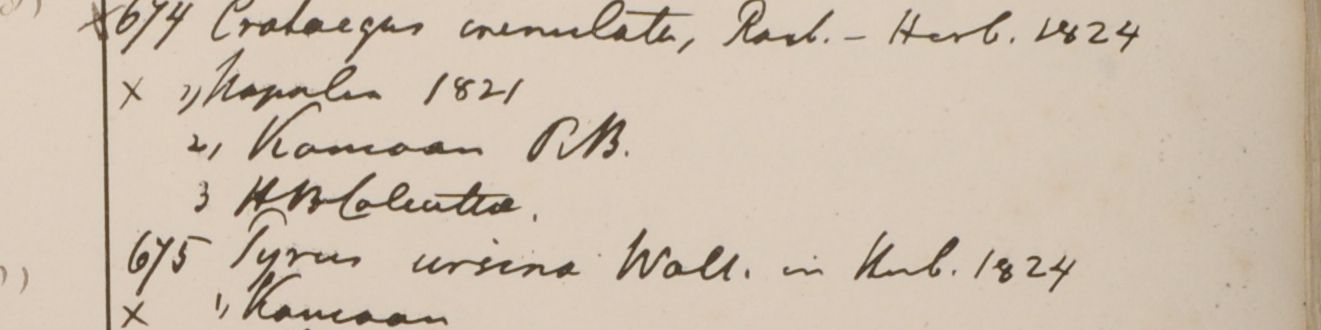 x 674 Crataegus crenulata, Roxb. - Herb. 1824
x 1, Napalia 1821
2, Kamoan R.B.
3 HBCalcutta.
675 Pyrus ursina Wall. in Herb. 1824
x 1, Kamoan